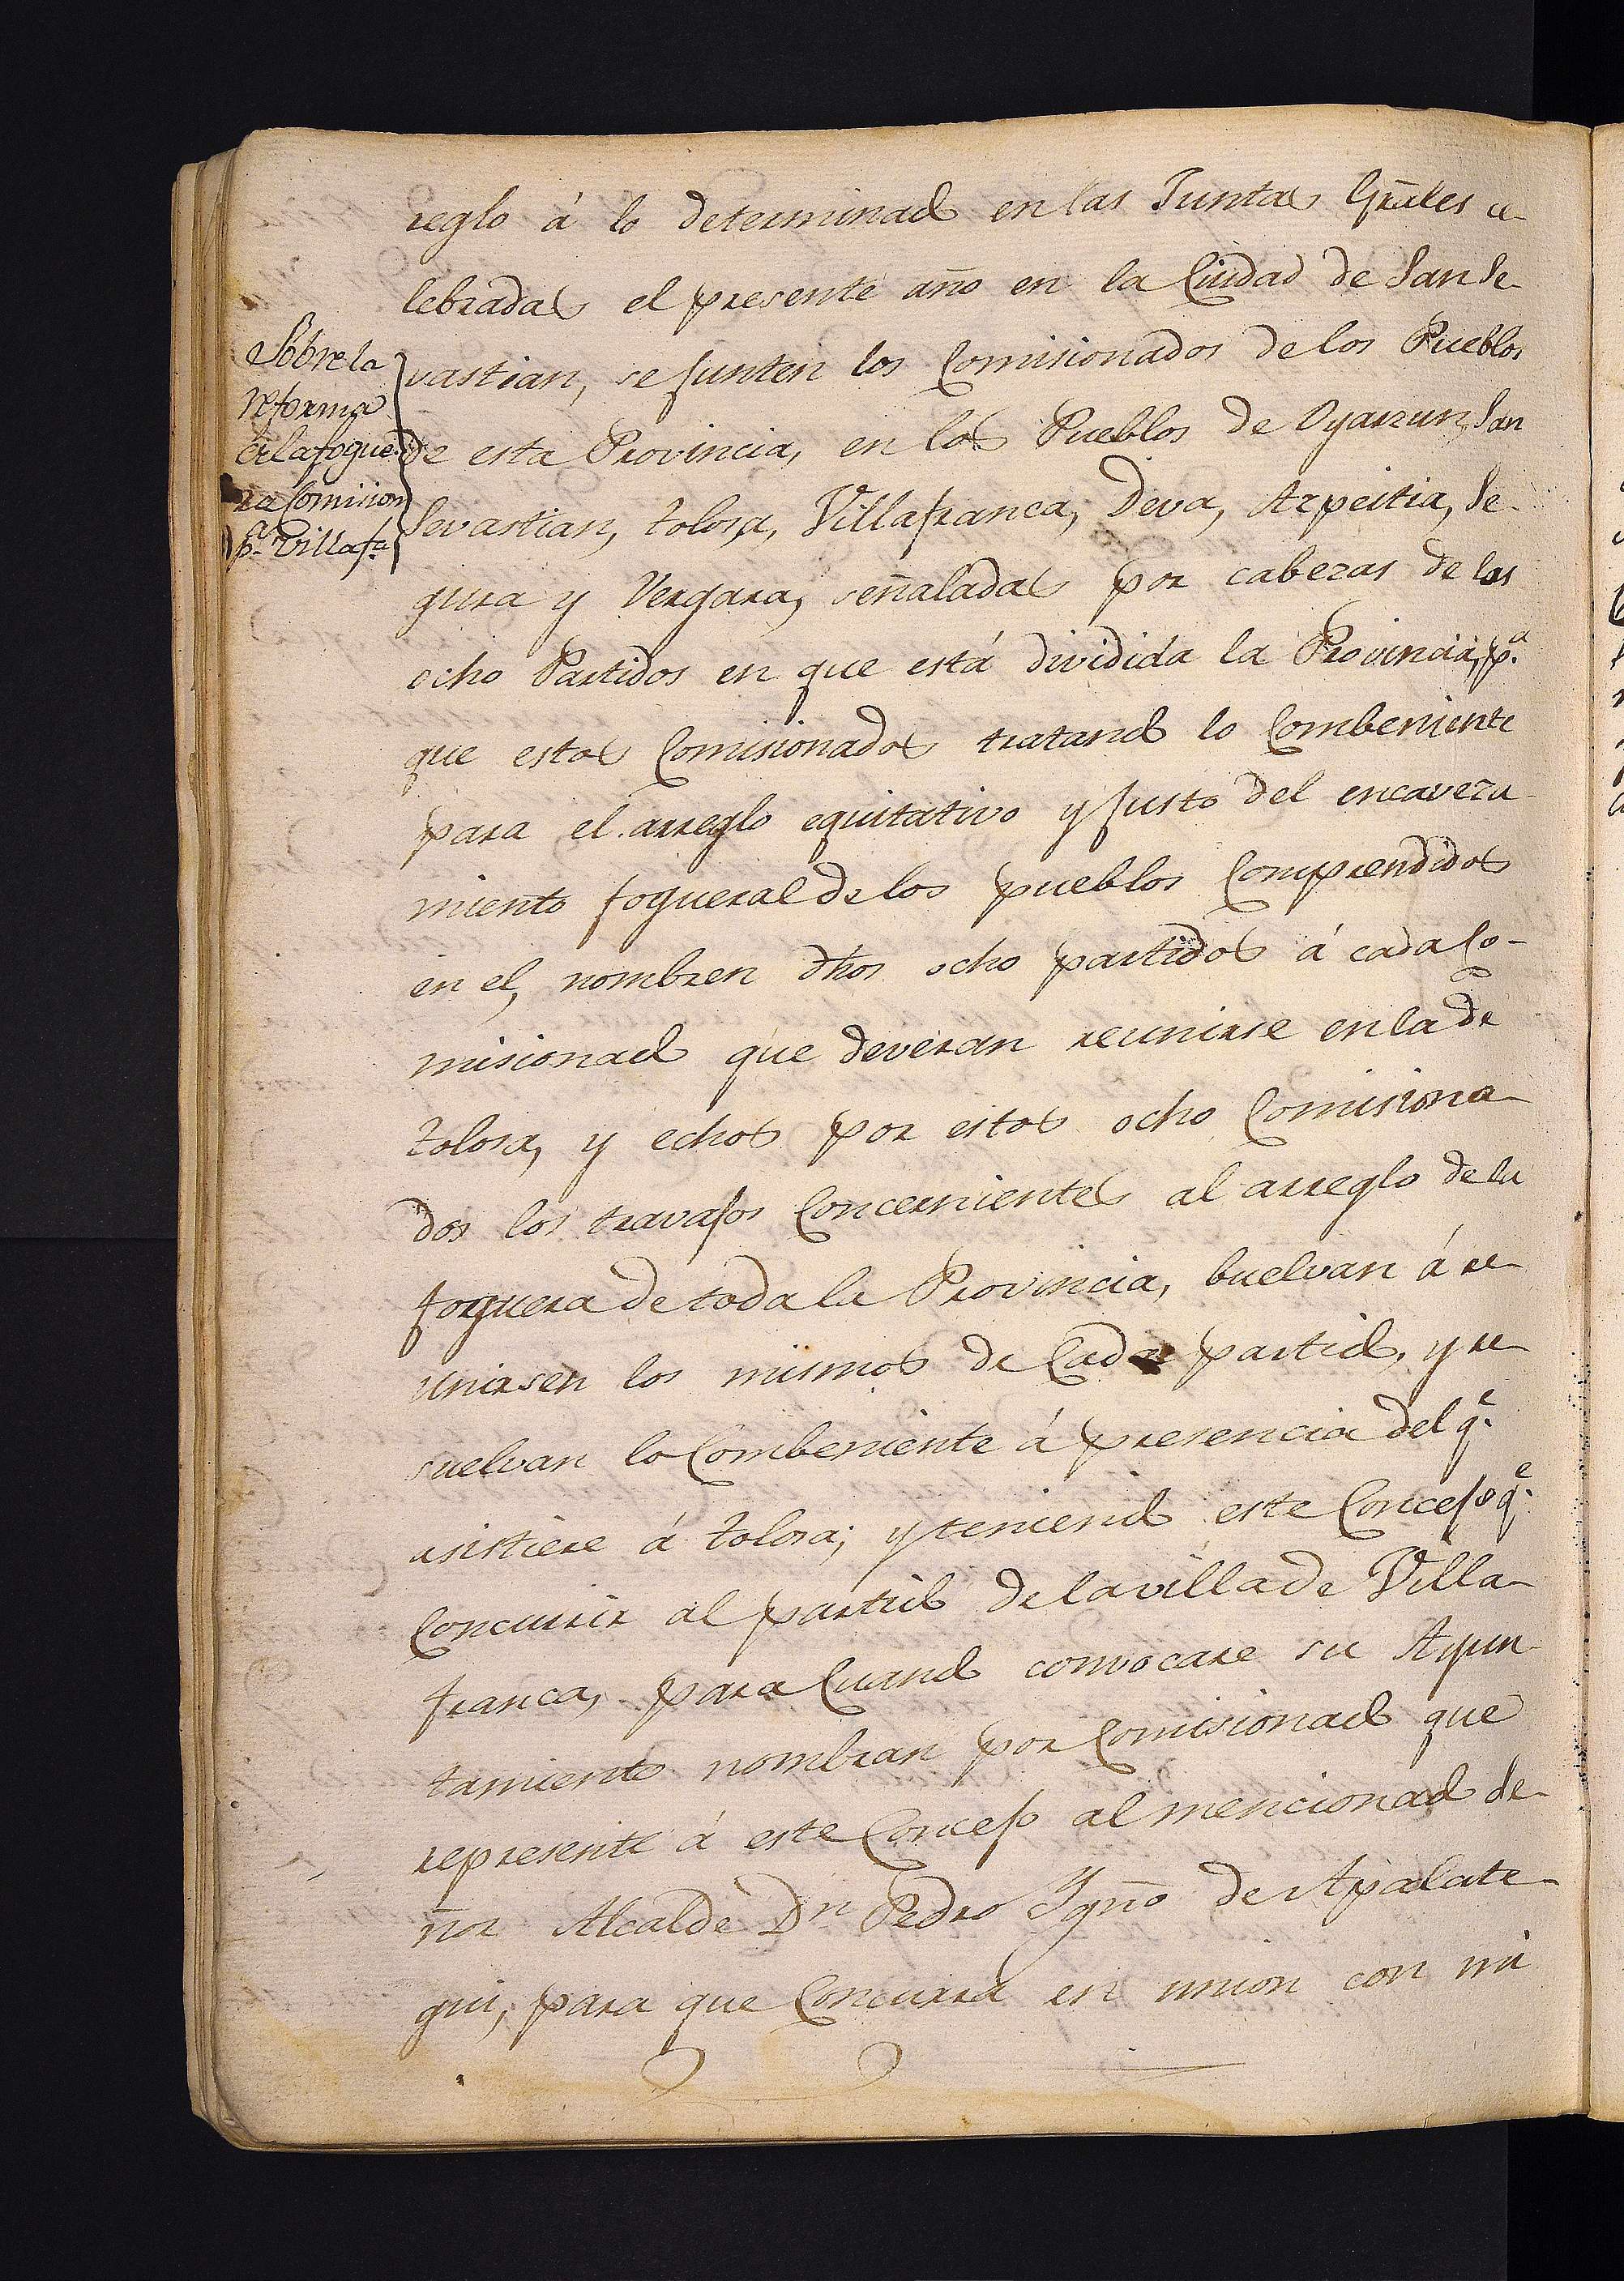 reglo á lo determinado en las Juntas Gñales ce-
lebradas el presente año en la Ciudad de San Se-
vastian, se junten los Comisionados de los Pueblos
de esta Provincia, en los Pueblos de Oyarzun, San
Sevastian, tolosa, Villafranca, Deva, Azpeitia, Se-
gura y Vergara, señalados por cabezas de los
ocho Partidos en que está dividida la Provincia, p.ª
que estos Comisionados tratando lo Combeniente
para el arreglo equitativo y justo del encaveza-
miento fogueral de los pueblos Comprendidos
en el, nombren dhos ocho partidos á cada Co-
misionado que deveran reunirse en la de
tolosa, y echos por estos ocho Comisiona-
dos los travajos Concernientes al arreglo de la
foguera de toda la Provincia, buelvan á re-
unirsen los mismos de Cada partido, y re-
suelvan lo Combeniente á presencia del q.e
asistiere á tolosa; y teniendo este Concejo q.e
Concurrir al partido de la villa de Villa-
franca, para Cuando convocare su Ayun-
tamiento nombran por Comisionado que
represente á este Concejo al mencionado Se-
ñor Alcalde Dn Pedro Ygño de Apalate-
gui, para que Concurra en union con mi
Sobre la
reforma
de la fogue-
ra Comision
p.a Villaf.ca